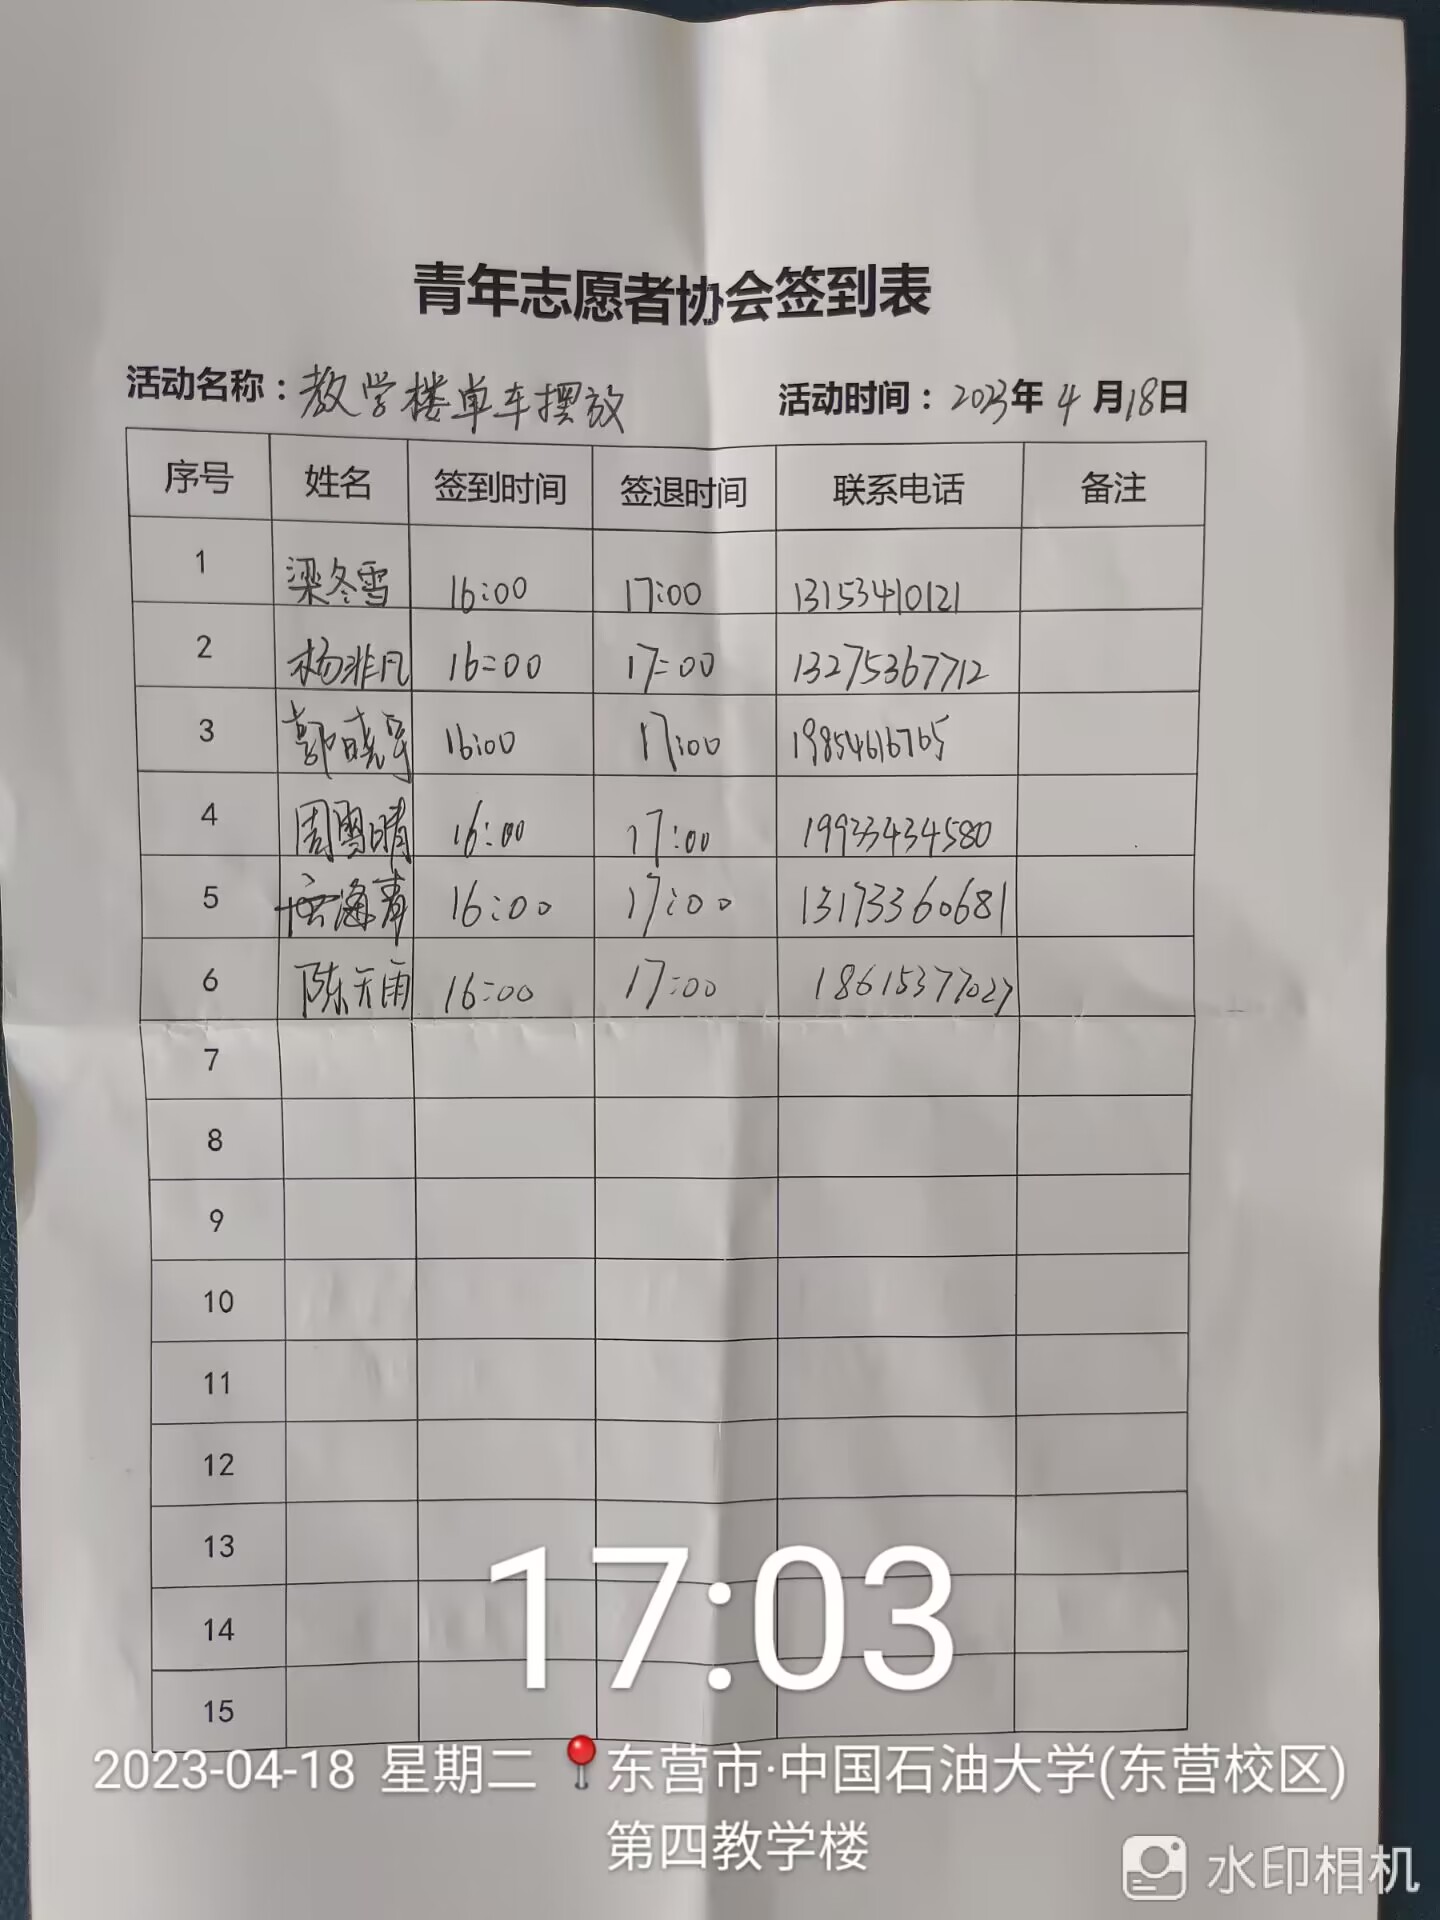 青年志愿者协会签到表
活动名称：教学楼单车摆放 活动时间：2023年4月18日
序号 姓名 签到时间 签退时间 联系电话 备注
1 梁冬雪 16:00 17:00 13153410121
2 杨非凡 16:00 17:00 13275367712
3 郭晓 16:00 17:00 19854616765
4 周雪晴 16:00 17:00 19933434580
5 海青 16:00 17:00 13173360681
6 陈天雨 16:00 17:00 18615377027
7
8
9
10
11
12
13
14
15
17:03
2023-04-18 星期二 东营市·中国石油大学(东营校区)
第四教学楼
水印相机